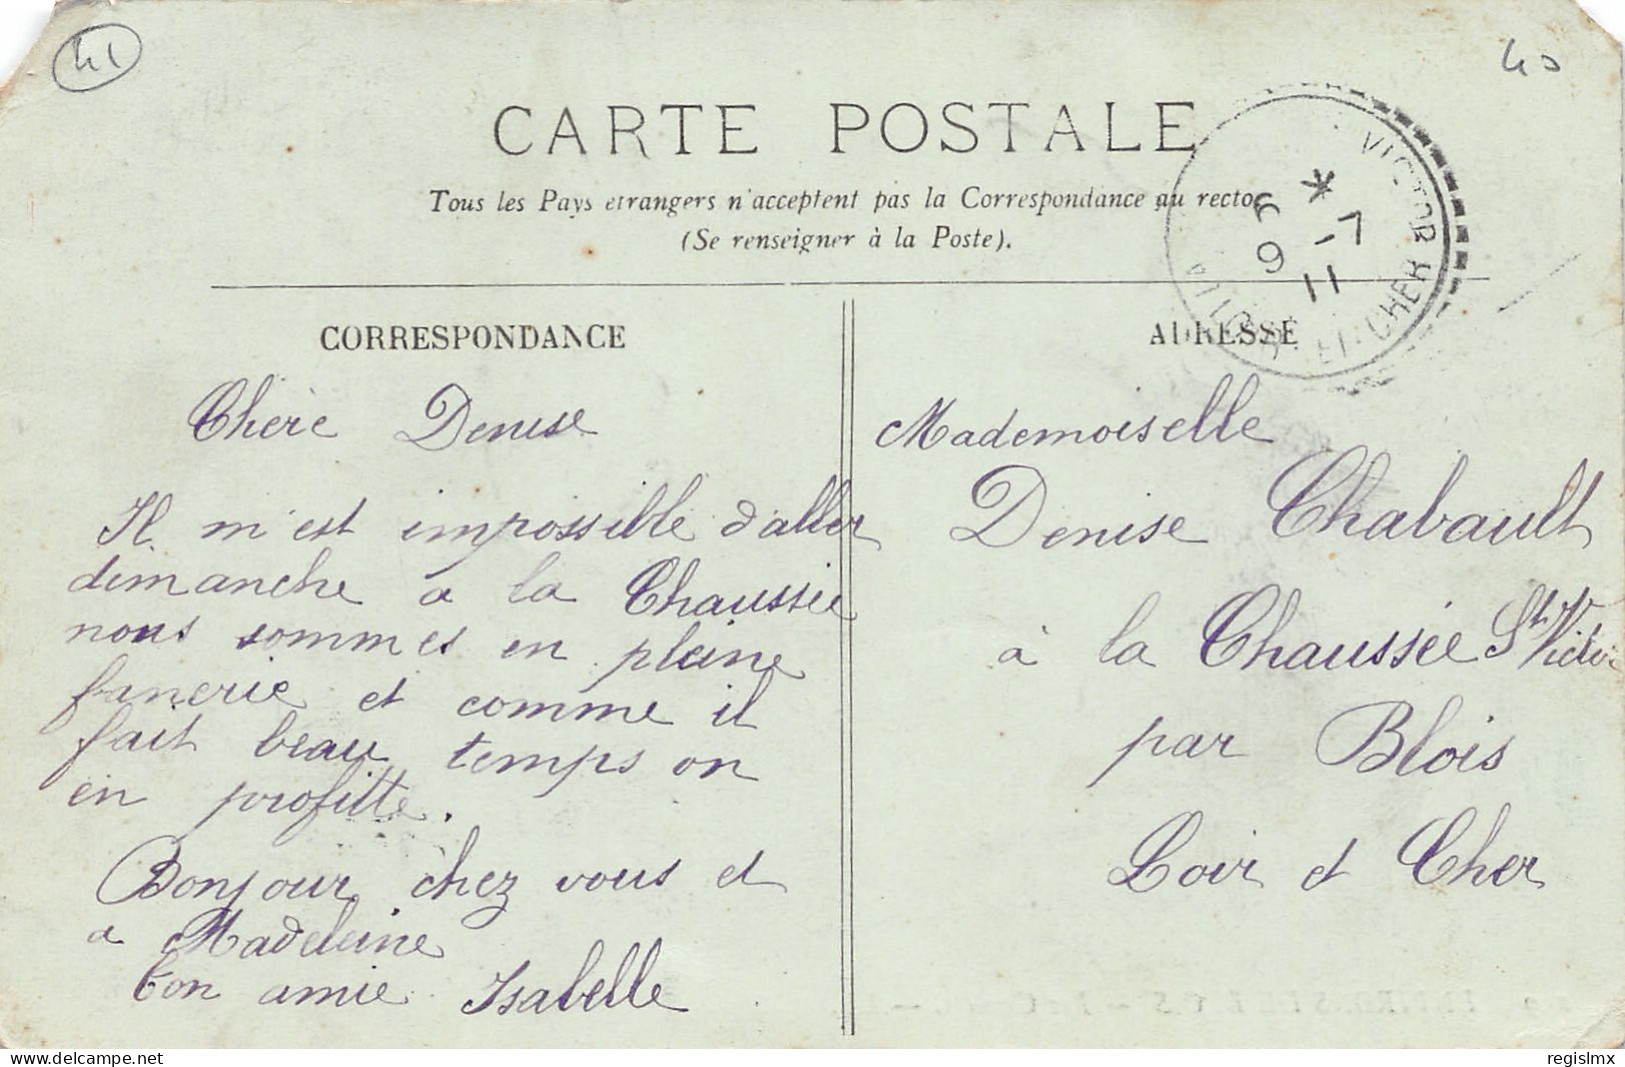 41
40
CARTE POSTALE
Tous les Pays etrangers n'acceptent pas la Correspondance au recto
(Se renseigner à la Poste).
VICTOR
9 -7
11
ET-CHER
CORRESPONDANCE
ADRESSE
Chère Denise
Il m'est impossible d'aller
dimanche a la Chaussée
nous sommes en pleine
fanerie et comme il
fait beau temps on
en profitte.
Bonjour chez vous et
a Madeleine
ton amie Isabelle
Mademoiselle
Denise Chabault
à la Chaussée St Victor
par Blois
Loir et Cher
regislmx